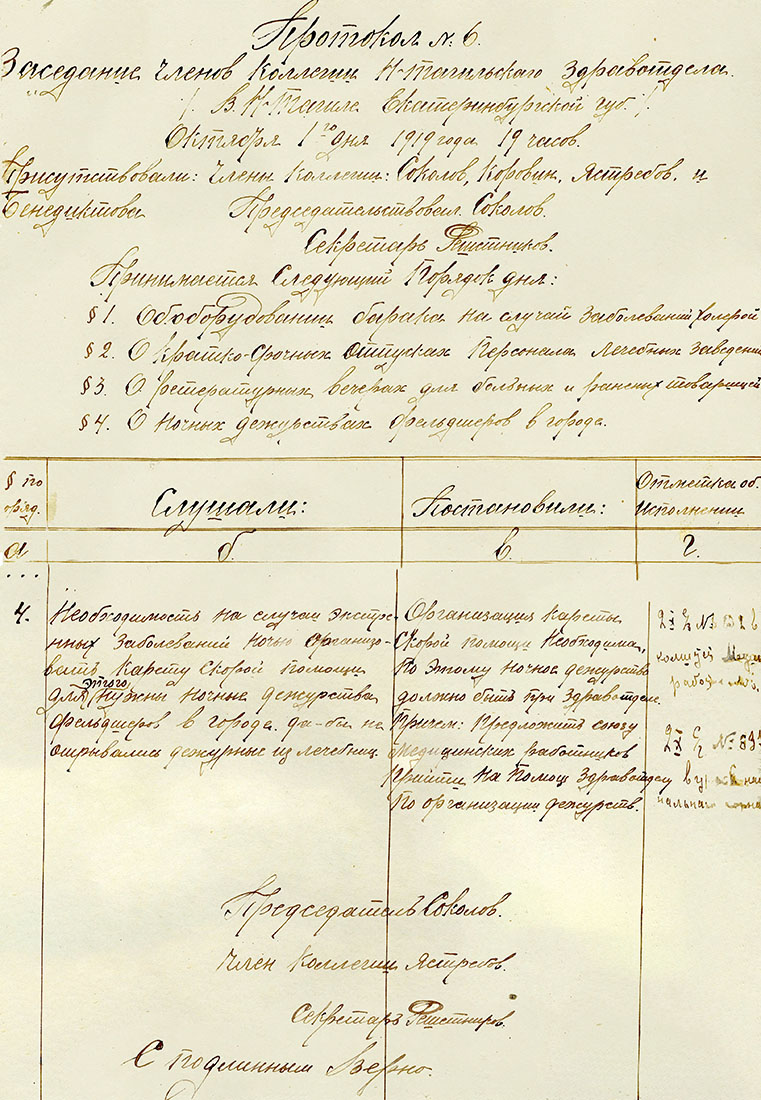 Протокол №. 6.
Заседание Членов Коллегии Н-Тагильского Здравотдела
/ В. Н-Тагиле Екатеринбургской губ /
Октября 1го дня 1919 года 19 часов.
Присутствовали: Члены Коллегии: Соколов, Коровин, Ястребов. и
Бенедиктова Председательствовал Соколов.
Секретарь Решетников.
Принимается Следующий Порядок дня:
§ 1. Об оборудовании барака на случай Заболеваний холерой
§ 2. О кратко-срочных отпусках Персонала лечебных Заведени
§ 3. О вечерах для больных и раненых товарищей
§ 4. О ночных дежурствах фельдшеров в города.
§ по поряд.
Слушали:
Постановили:
Отметка об. Исполнении
а
б.
в.
г.
...
4.
Необходимость на случаи экстре-
нных Заболеваний ночью Организо-
вать Карету Скорой помощи
для этого нужны ночные дежурства
фельдшеров в города. да-бы не
отрывались дежурные из лечебниц.
Организация Кареты
Скорой помощи Необходима,
По этому ночное дежурство
должно быть при Здравотделе.
Причем: Предложить союзу
Медицинских работников
Прийти на Помощ Здравотделу
По организации дежурств.
№
№ 891
Председатель Соколов.
Член Коллегии Ястребов.
Секретарь Решетников.
С подлинным Верно.